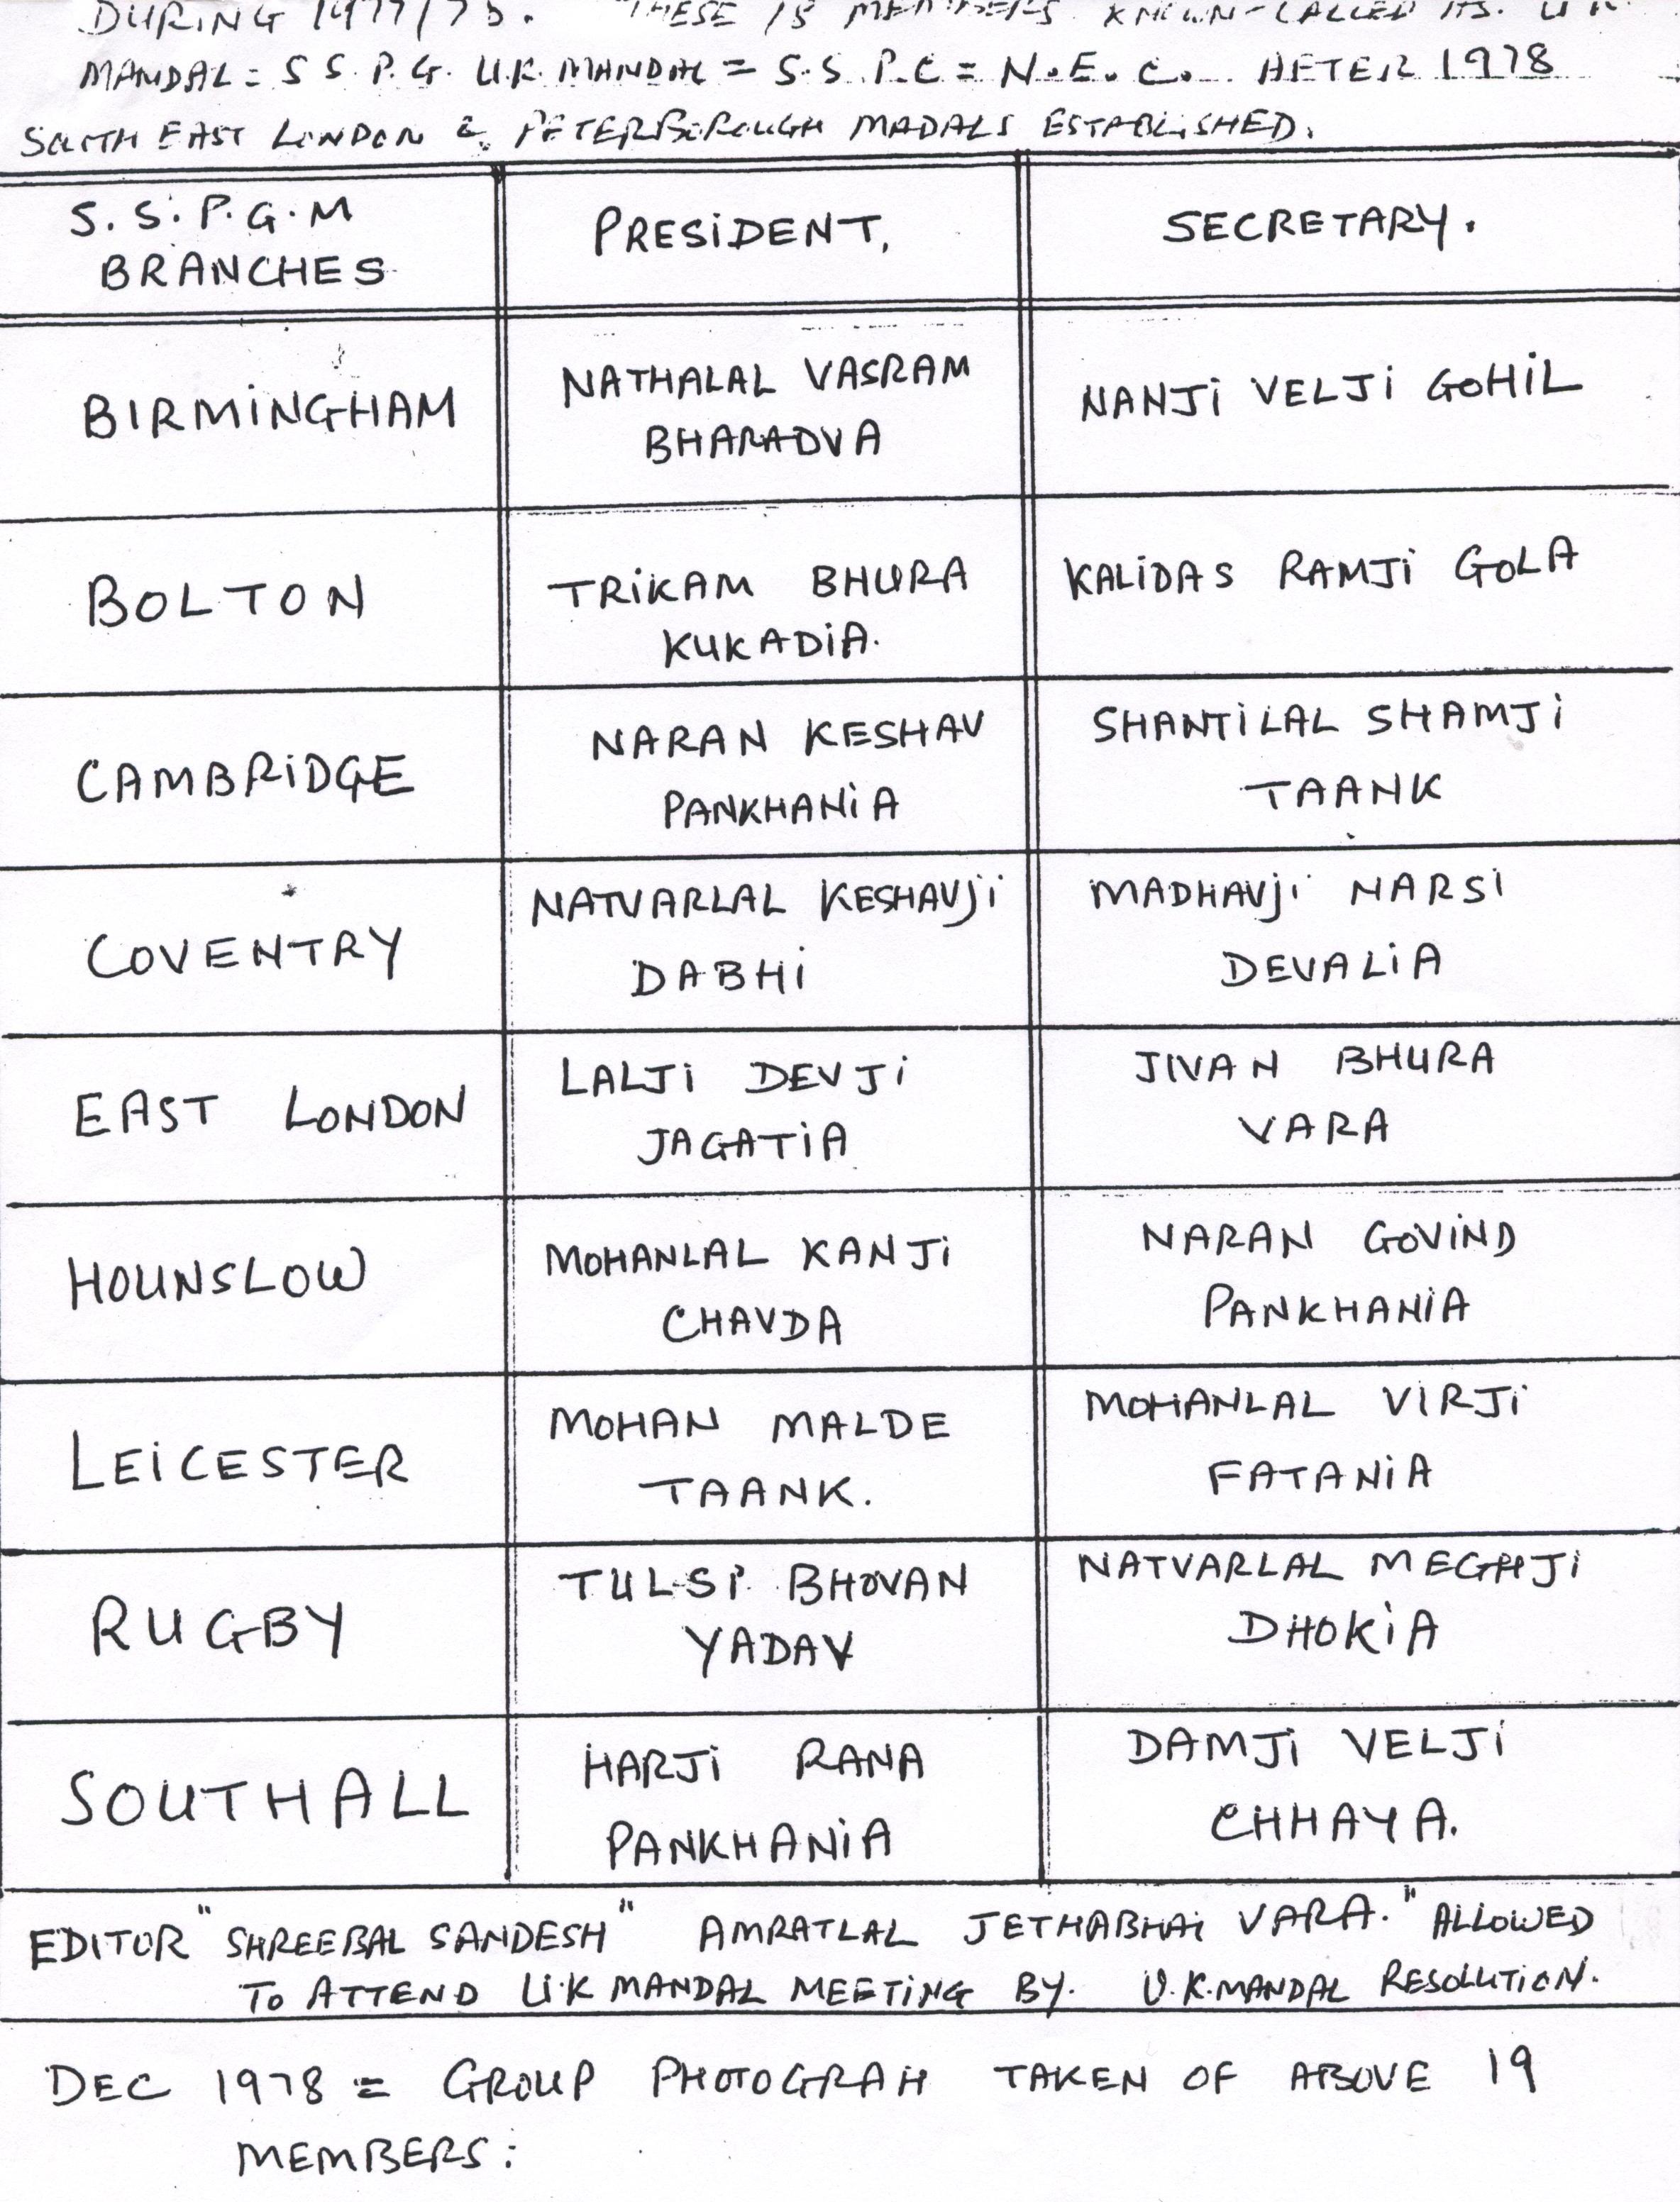 DURING 1977/78. THESE 18 MEMBERS KNOWN-CALLED AS. U.K.
MANDAL = S S. P. G. U.K. MANDAL = S.S. P.C = N.E.C. AFTER 1978
SOUTH EAST LONDON & PETERBOROUGH MADALS ESTABLISHED.
S. S. P. G. M BRANCHES
PRESIDENT,
SECRETARY.
BIRMINGHAM
NATHALAL VASRAM
BHARADVA
NANJI VELJI GOHIL
BOLTON
TRIKAM BHURA
KUKADIA.
KALIDAS RAMJI GOLA
CAMBRIDGE
NARAN KESHAV
PANKHANIA
SHANTILAL SHAMJI
TAANK
COVENTRY
NATVARLAL KESHAVJI
DABHI
MADHAVJI NARSI
DEVALIA
EAST LONDON
LALJI DEVJI
JAGATIA
JIVAN BHURA
VARA
HOUNSLOW
MOHANLAL KANJI
CHAVDA
NARAN GOVIND
PANKHANIA
LEICESTER
MOHAN MALDE
TAANK.
MOHANLAL VIRJI
FATANIA
RUGBY
TULSI BHOVAN
YADAV
NATVARLAL MEGHJI
DHOKIA
SOUTHALL
HARJI RANA
PANKHANIA
DAMJI VELJI
CHHAYA.
EDITOR "SHREEBAL SANDESH" AMRATLAL JETHABHAI VARA." ALLOWED
TO ATTEND U.K MANDAL MEETING BY. U.K. MANDAL RESOLUTION.
DEC 1978 = GROUP PHOTOGRAH TAKEN OF ABOVE 19
MEMBERS: